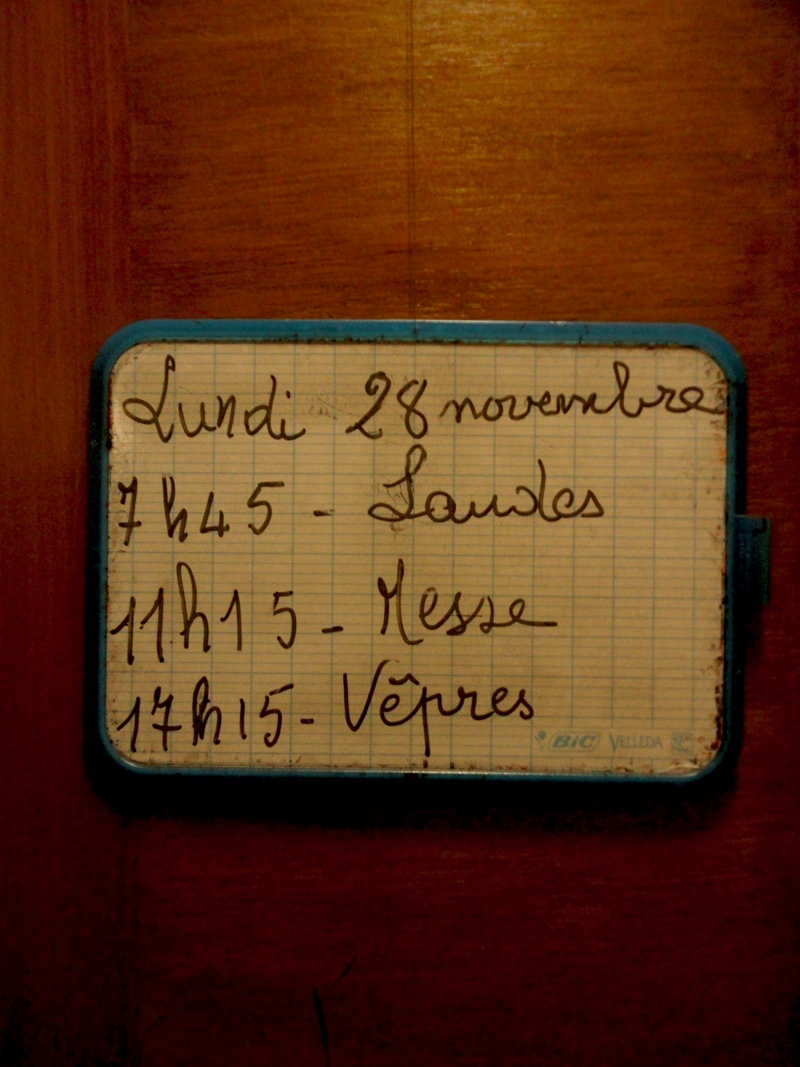 Lundi 28 novembre
7h45 - Laudes
11h15 - Messe
17h15 - Vêpres
BIC VELLEDA